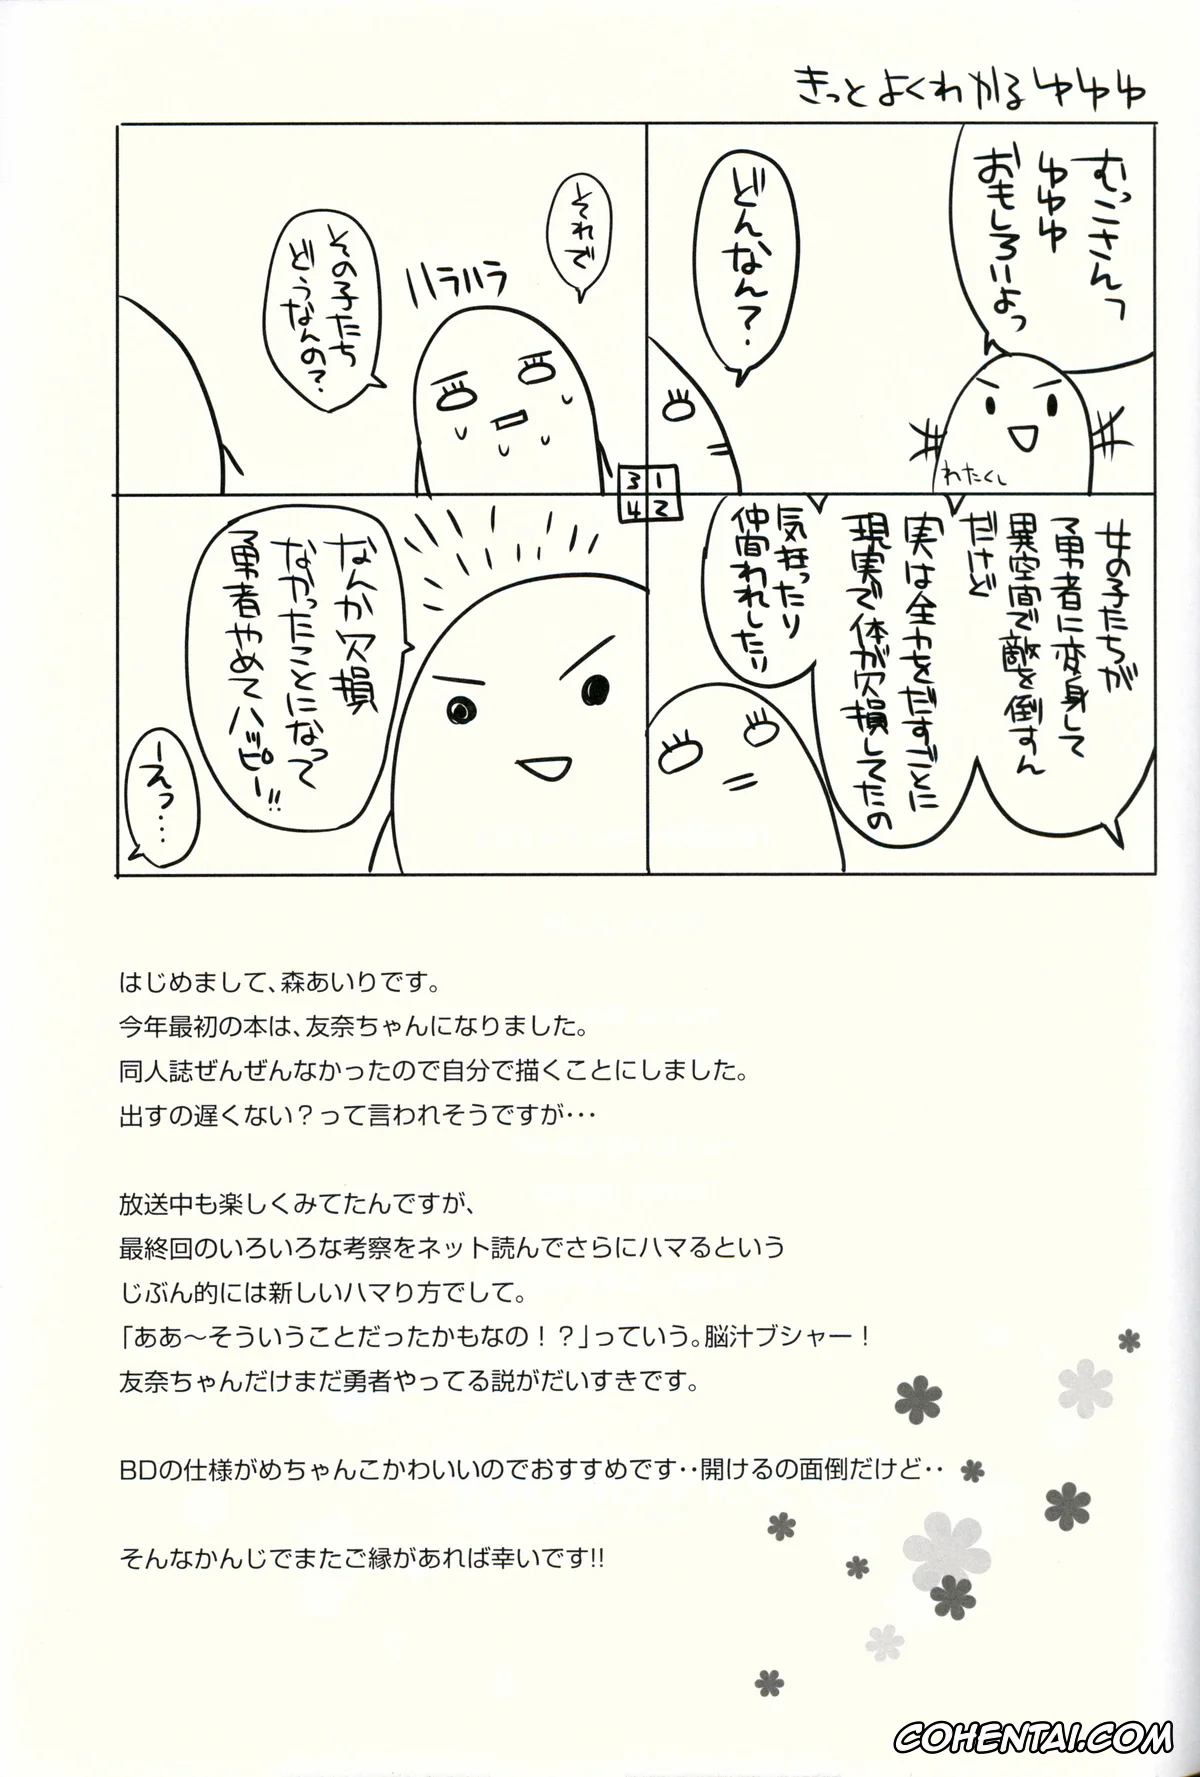 きっとよくわかるゆゆゆ
むっこさんっ
ゆゆゆ
おもしろいよっ
わたくし
どんなん?
女の子たちが
勇者に変身して
異空間で敵を倒すん
だけど
実は全力をだすごとに
現実で体が欠損してたの
気持ったり
仲間われしたり
1
2
3
4
それで
ハラハラ
その子たち
どうなんの?
なんか欠損
なかったことになって
勇者やめてハッピー!!
ーえっ…
はじめまして、森あいりです。
今年最初の本は、友奈ちゃんになりました。
同人誌ぜんぜんなかったので自分で描くことにしました。
出すの遅くない?って言われそうですが・・・
放送中も楽しくみてたんですが、
最終回のいろいろな考察をネット読んでさらにハマるという
じぶん的には新しいハマり方でして。
「ああ〜そういうことだったかもなの!?」っていう。脳汁ブシャー!
友奈ちゃんだけまだ勇者やってる説がだいすきです。
BDの仕様がめちゃんこかわいいのでおすすめです・・開けるの面倒だけど・・
そんなかんじでまたご縁があれば幸いです!!
COHENTAI.COM